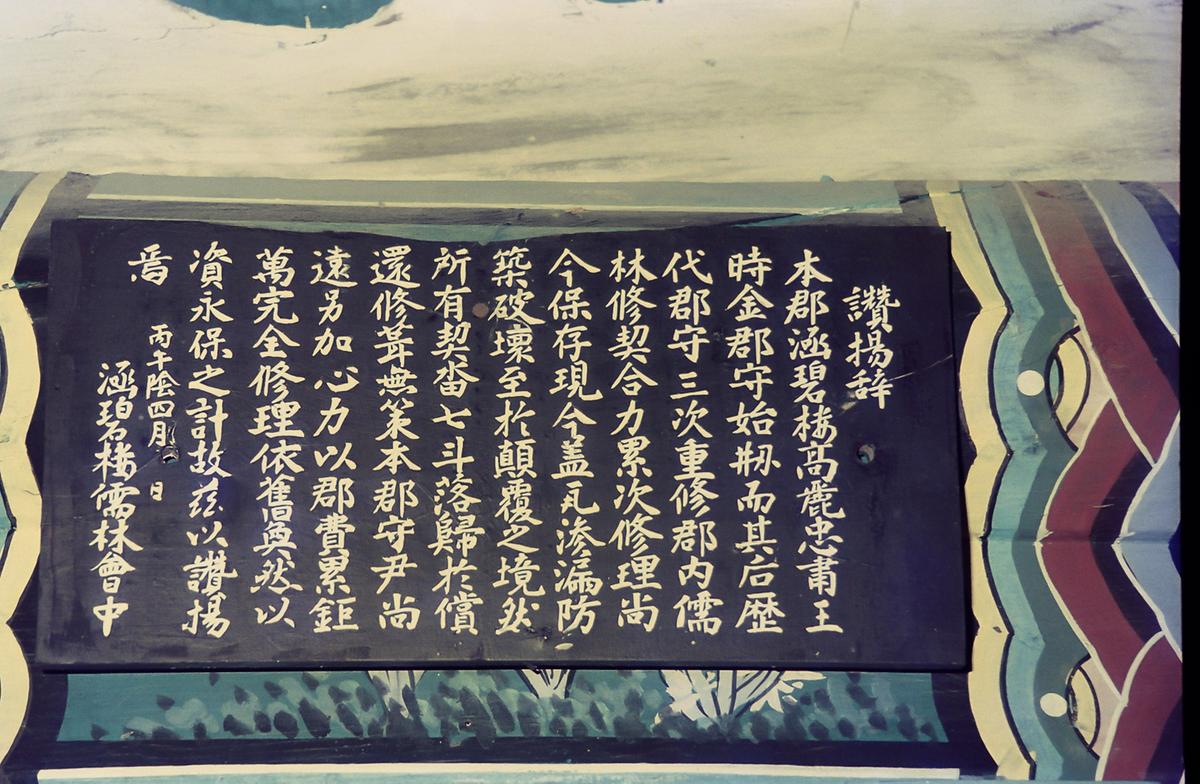 讚揚辭
本郡涵碧樓高麗忠肅王
時金郡守始刱而其后歷
代郡守三次重修郡內儒
林修契合力累次修理尚
今保存現今盖瓦滲漏防
築破壞至於顛覆之境然
所有契畓七斗落歸於償
還修葺無策本郡守尹尚
遠另加心力以郡費累鉅
萬完全修理依舊奐然以
資永保之計故玆以讚揚
焉
丙午陰四月 日
涵碧樓儒林會中